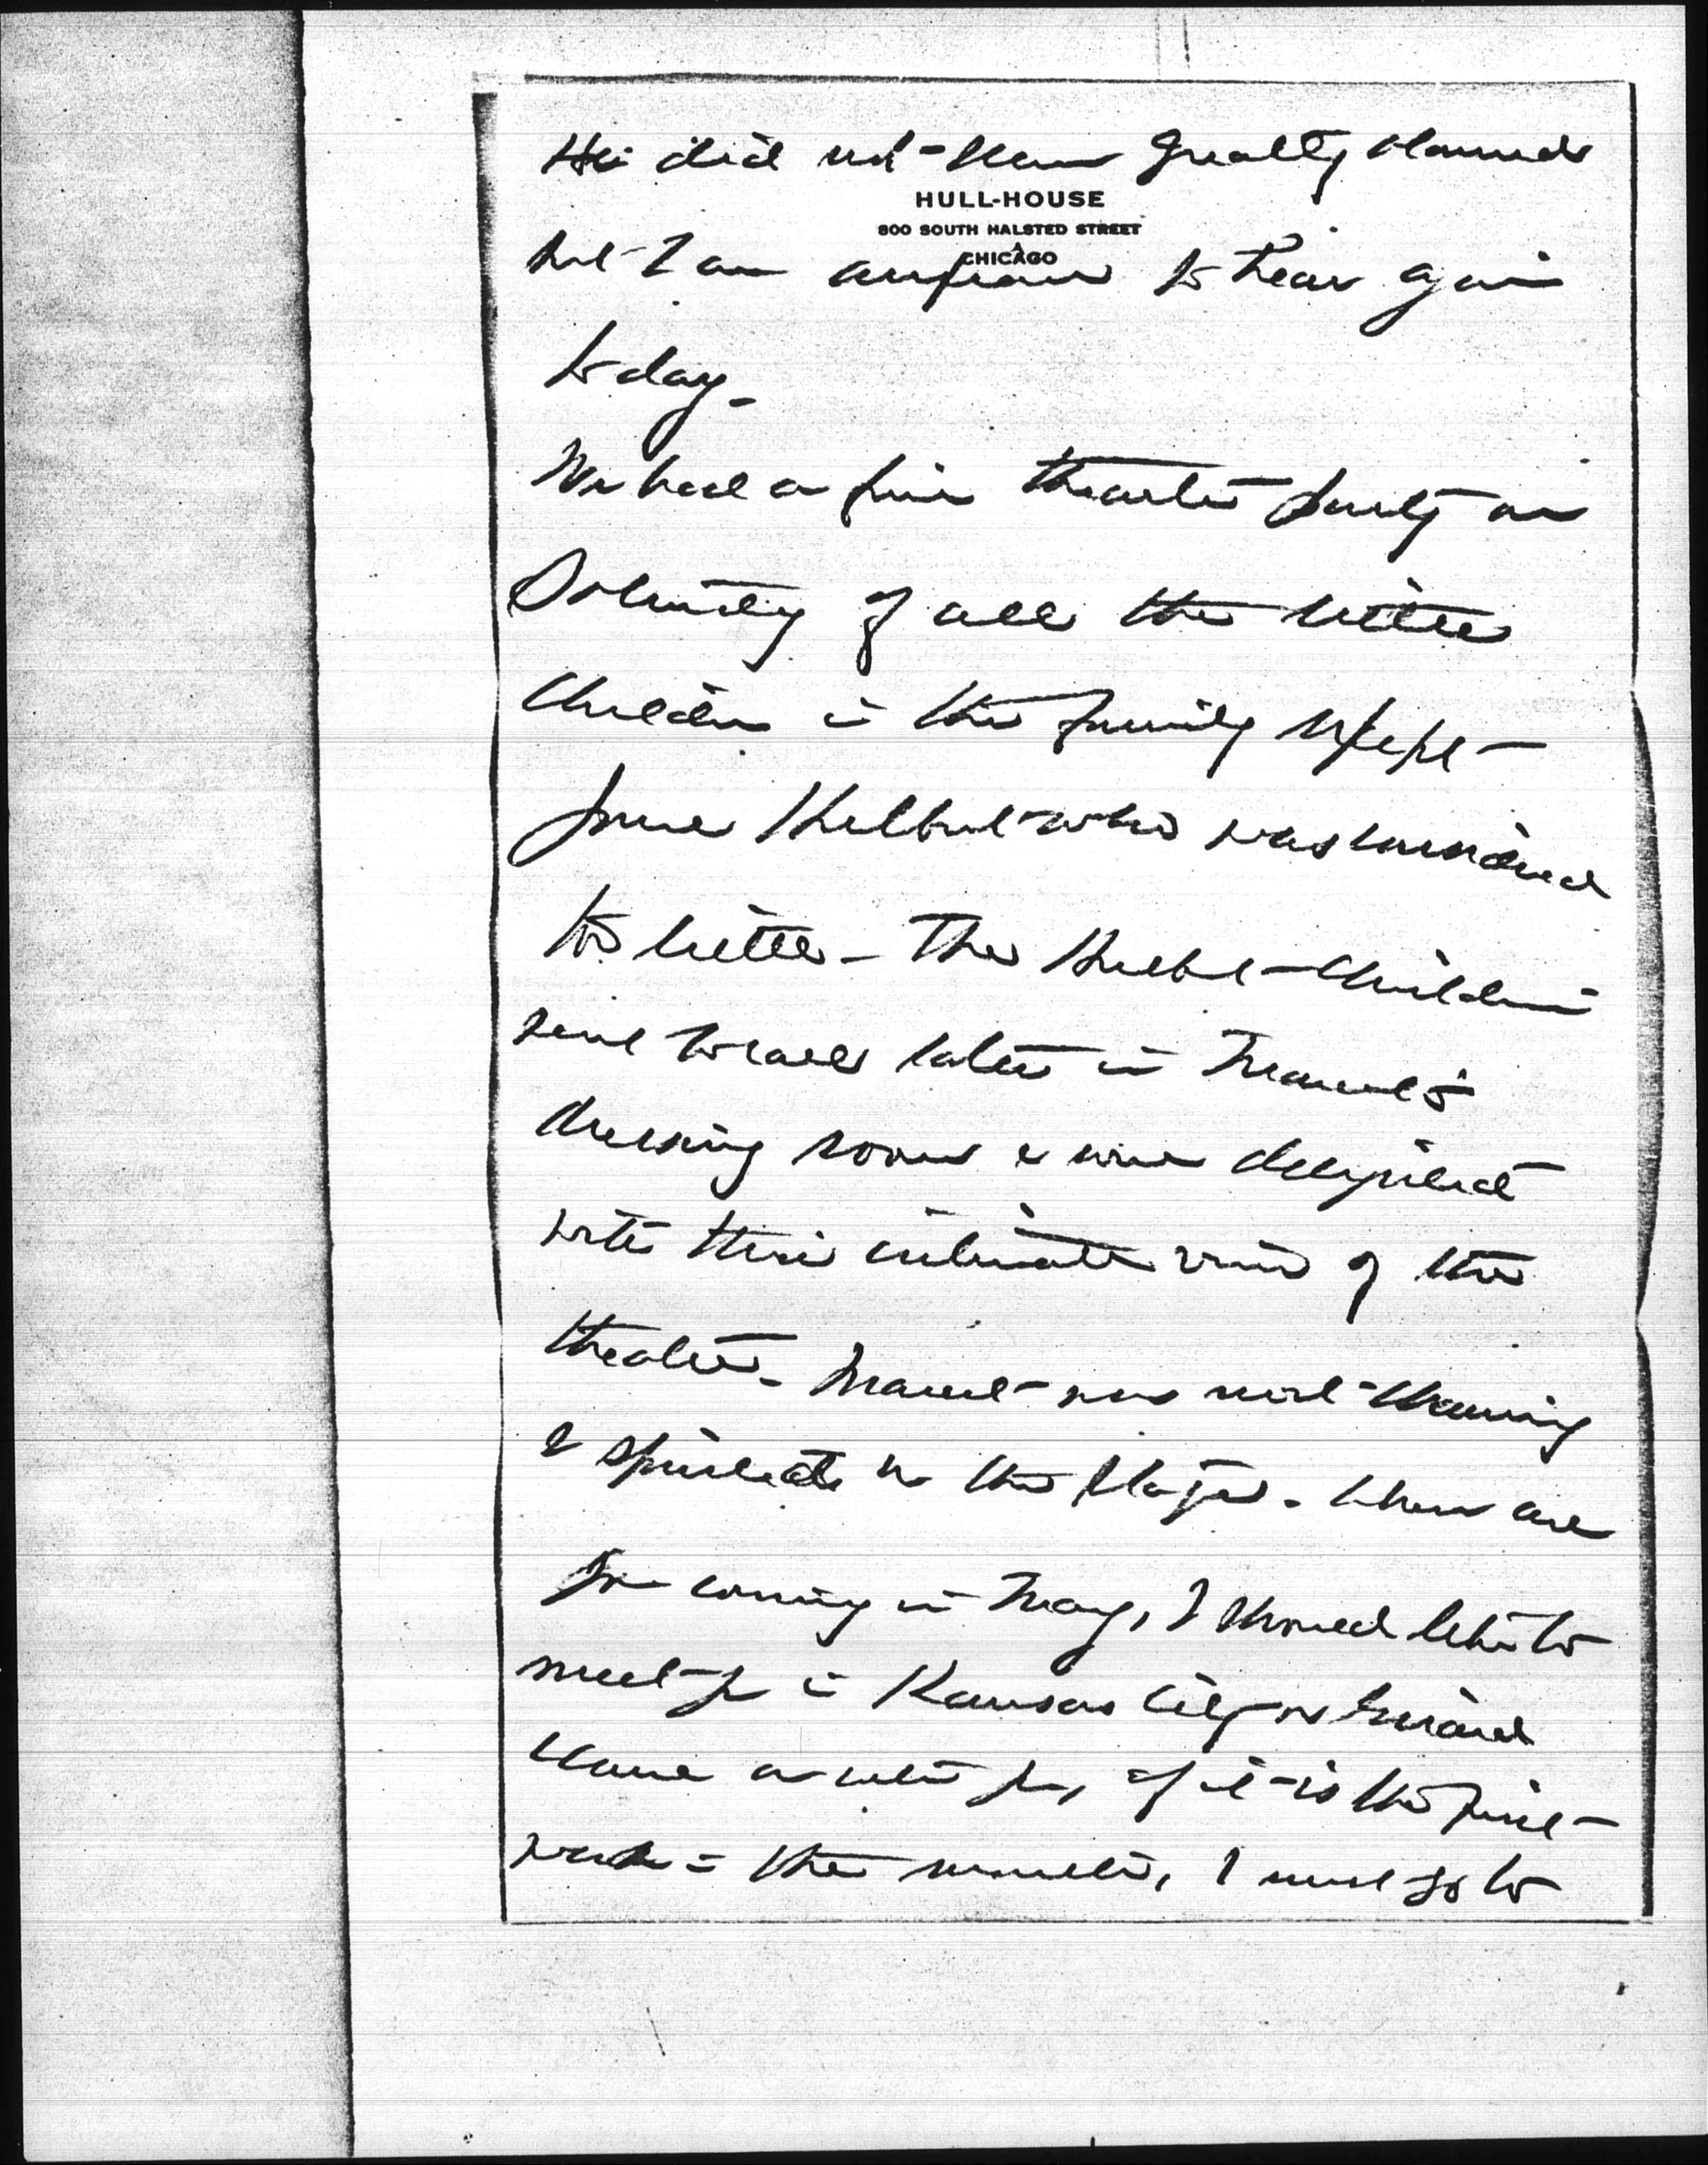 He did not seem greatly alarmed
HULL-HOUSE
800 SOUTH HALSTED STREET
CHICAGO
but I am anxious to hear again
to day_
We had a fine theater party on
Saturday of all the little
children in the family except
Jane Hulbert who was considered
too little _ The Hulbert children
were to call later in Marcet's
dressing room & were delighted
with their intimate view of the
theater _ Marcet was most charming
& spirited on the stage. When are
you coming in May, I should like to
meet you in Kansas City or Girard
come as with you, if it is the first
week in the month, I must go to